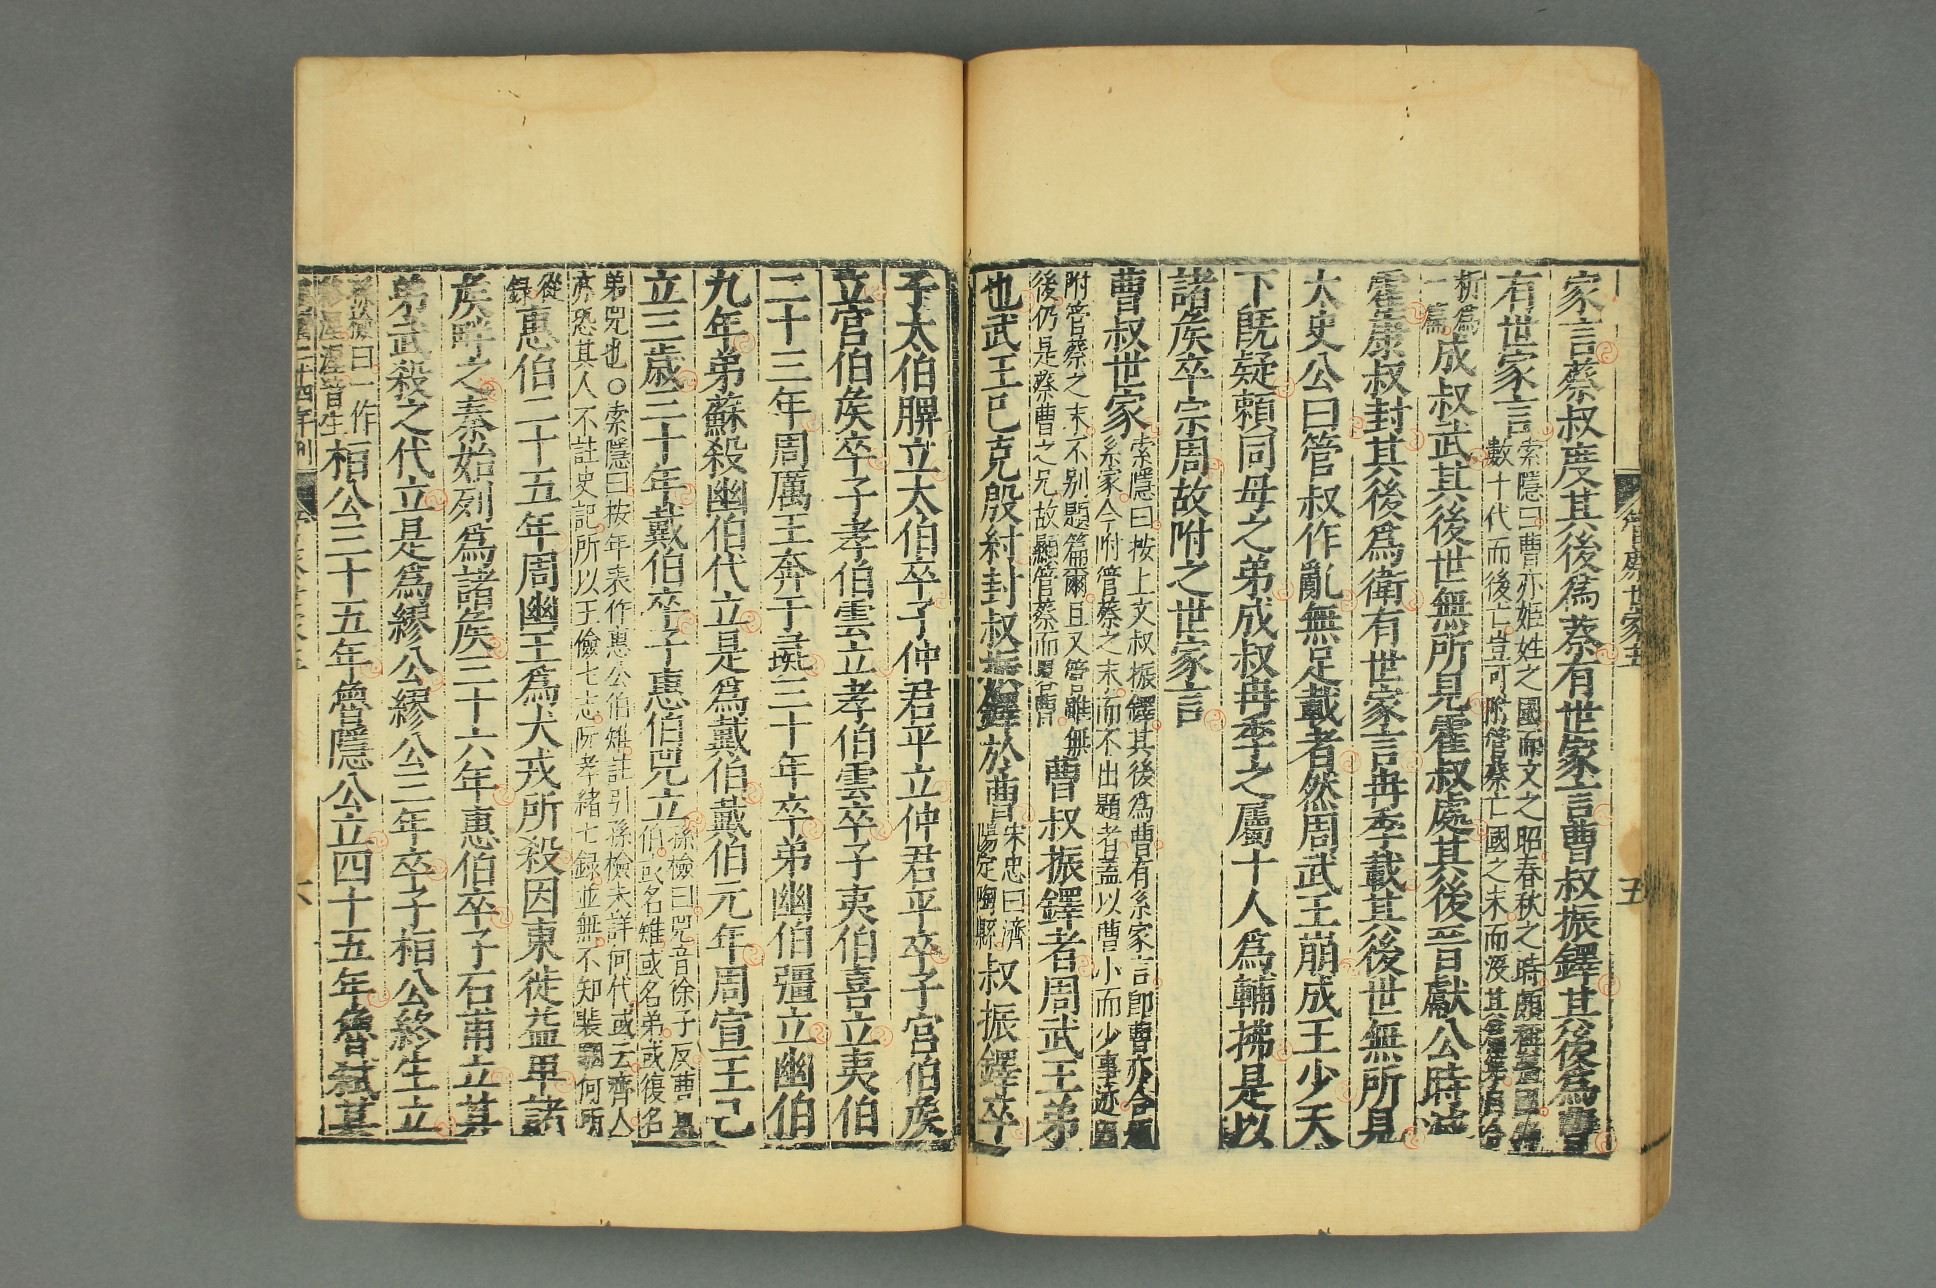 管蔡世家五
五
家言蔡叔度其後爲蔡有世家言曹叔振鐸其後爲曹
有世家言索隱曰曹亦姬姓之國而文之昭春秋之時頗稱
數十代而後亡豈可附管蔡亡國之末而沒其
析爲
一篇成叔武其後世無所見霍叔處其後晋獻公時滅
霍康叔封其後爲衛有世家言冉季載其後世無所見
太史公曰管叔作亂無足載者然周武王崩成王少天
下既疑頼同母之弟成叔冉季之屬十人爲輔拂是以
諸侯卒宗周故附之世家言
曹叔世家索隱曰按上文叔振鐸其後爲曹有系家言即曹亦合題
系家今附管蔡之末而不出題者蓋以曹小而少事迹因
附管蔡之末不別題篇爾且又管雖無
後仍是蔡曹之兄故題管蔡而畧曹曹叔振鐸者周武王弟
也武王已克殷紂封叔振鐸於曹宋忠曰濟
陽定陶縣叔振鐸卒
子太伯脾立太伯卒子仲君平立仲君平卒子宮伯侯
立宮伯侯卒子孝伯雲立孝伯雲卒子夷伯喜立夷伯
二十三年周厲王奔于彘三十年卒弟幽伯彊立幽伯
九年弟蘇殺幽伯代立是爲戴伯戴伯元年周宣王已
立三歳三十年戴伯卒子惠伯兕立孫檢曰兕音徐子反曹惠
伯或名雉或名弟或復名
弟兕也〇索隱曰按年表作惠公伯雉註引孫檢未詳何代或云齊人
亦恐其人不註史記所以王儉七志阮孝緒七錄並無不知裴駰何所
從
録惠伯二十五年周幽王爲犬戎所殺因東徙益卑諸
侯畔之秦始列爲諸侯三十六年惠伯卒子石甫立其
弟武殺之代立是爲繆公繆公三年卒子桓公終生立
孫檢曰一作
終湦湦音生桓公三十五年魯隱公立四十五年魯弑其
六